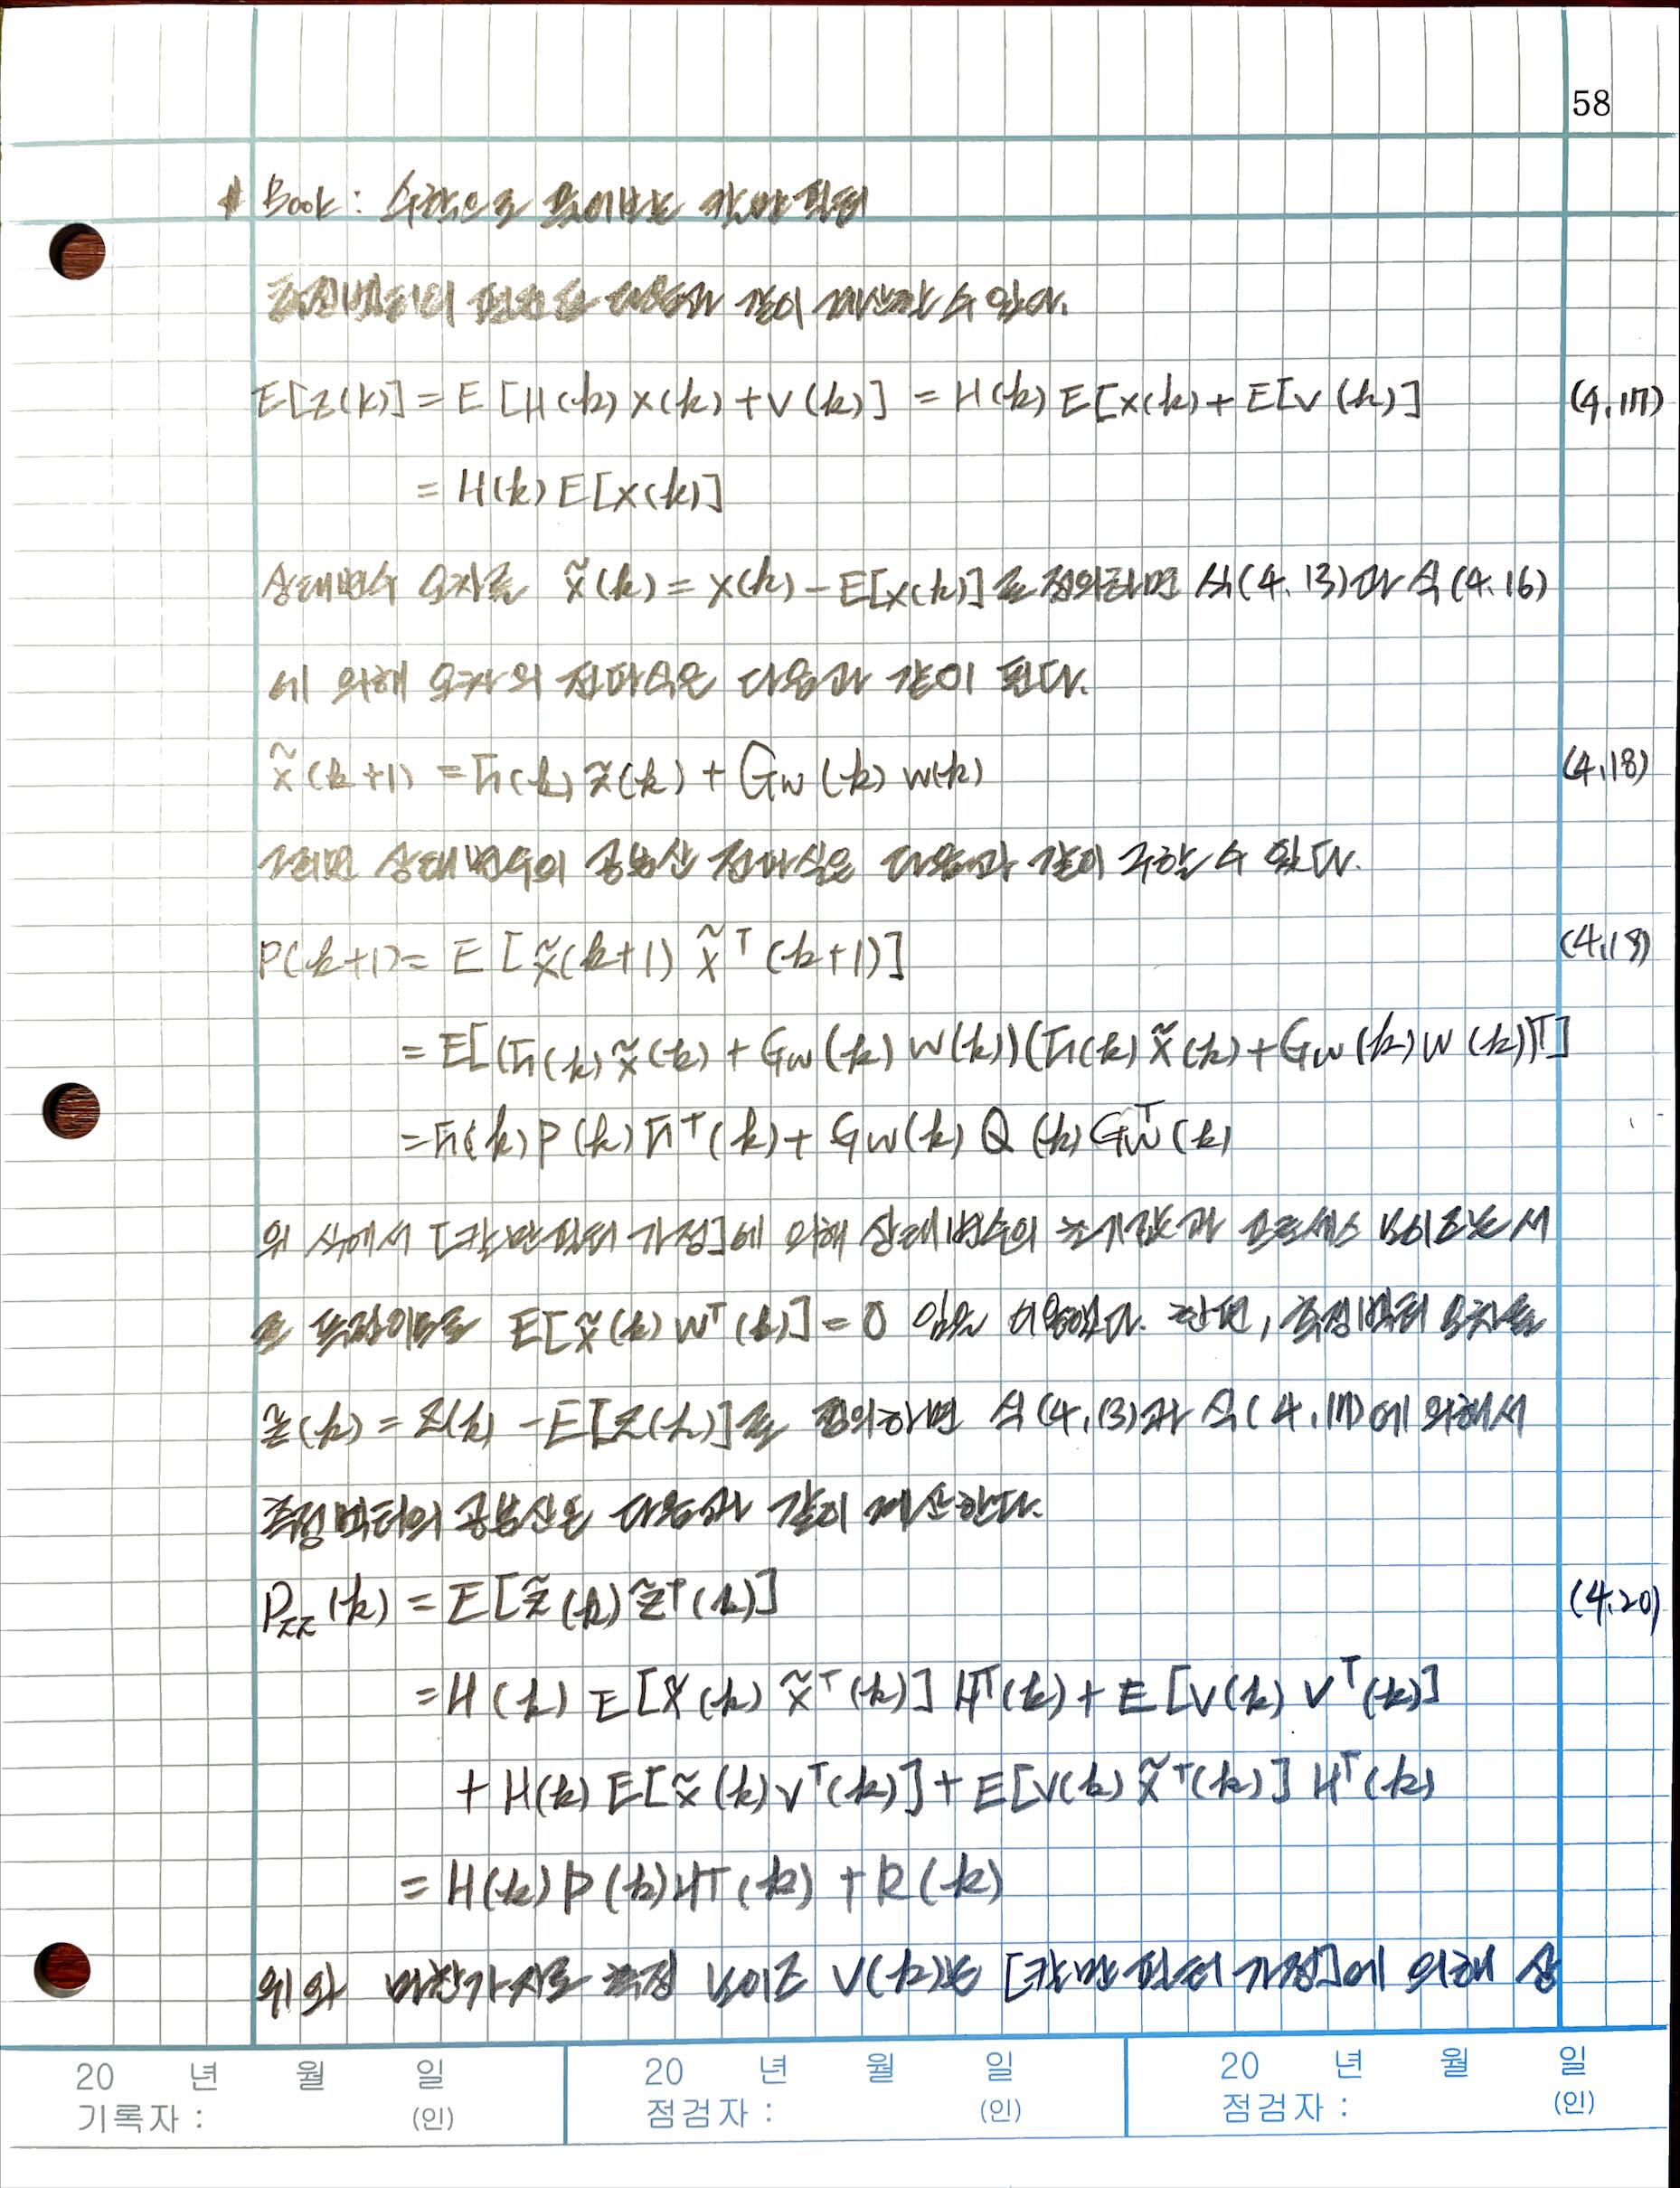 58
# Book: 수학으로 풀어보는 칼만 필터
측정벡터의 평균은 다음과 같이 계산할 수 있다.
E[z(k)] = E[H(k)x(k)+v(k)] = H(k)E[x(k)+E[v(k)] (4.17)
= H(k)E[x(k)]
상태변수 오차를 x̃(k)=x(k)-E[x(k)]로 정의하면 식(4.13)과 식(4.16)
에 의해 오차의 전파식은 다음과 같이 된다.
x̃(k+1) = F(k)x̃(k)+Gw(k)w(k) (4.18)
그러면 상태변수의 공분산 전파식은 다음과 같이 구할 수 있다.
P(k+1)= E[x̃(k+1)x̃ᵀ(k+1)] (4.19)
= E[(F(k)x̃(k)+Gw(k)w(k))(F(k)x̃(k)+Gw(k)w(k))ᵀ]
= F(k)P(k)Fᵀ(k)+Gw(k)Q(k)Gwᵀ(k)
위 식에서 [칼만필터 가정]에 의해 상태변수의 초기값과 프로세스 노이즈는 서
로 독립이므로 E[x̃(k)wᵀ(k)]=0 임을 이용했다. 한편, 측정벡터 오차를
z̃(k)=z(k)-E[z(k)]로 정의하면 식(4.13)과 식(4.17)에 의해서
측정벡터의 공분산은 다음과 같이 계산한다.
Pzz(k) = E[z̃(k)z̃ᵀ(k)] (4.20)
= H(k)E[x̃(k)x̃ᵀ(k)]Hᵀ(k)+E[v(k)vᵀ(k)]
+H(k)E[x̃(k)vᵀ(k)]+E[v(k)x̃ᵀ(k)]Hᵀ(k)
= H(k)P(k)Hᵀ(k)+R(k)
위와 마찬가지로 측정 노이즈 v(k)는 [칼만필터 가정]에 의해 상
20 년 월 일 20 년 월 일 20 년 월 일
기록자 : (인) 점검자 : (인) 점검자 : (인)